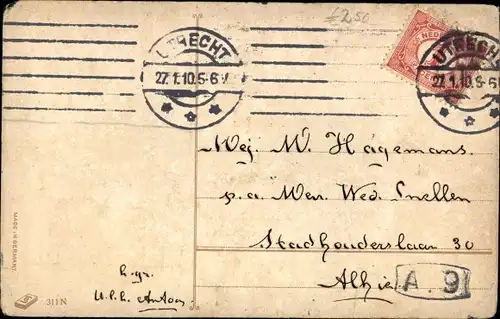 £2.50
UTRECHT
27.1.10.5-6
NED
UTRECH
27.1.10.5-6
Mej. W. Hagemans.
p.a. Mevr. Wed. Snellen
Stadhouderslaan 30
Alhier
A. 9
h.gr.
MADE IN GERMANY.
311N